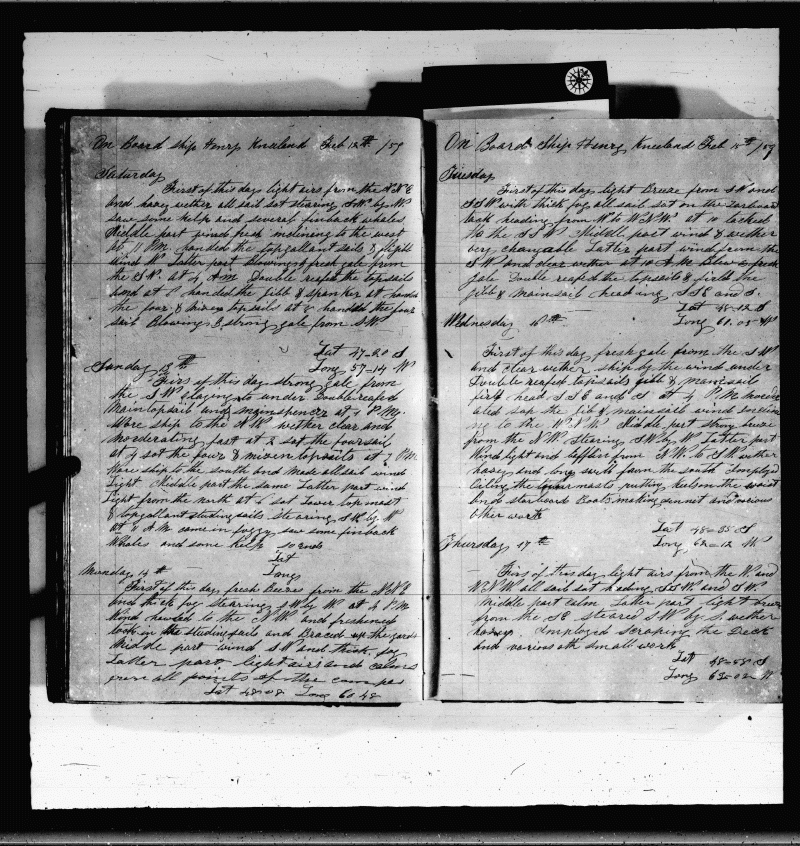 On Board Ship Henry Kneeland Feb 12th /59
Saturday
First of this day light airs from the N N E
and hazy wether all sail set stearing S W by W
saw some kelp and several finback whales
Middle part wind fresh inclining to the west
at 11 PM handed the topgallant sails & flyin
wind W Latter part Blowing a fresh gale from
the S W. at 4 AM Double reafed the topsails
and at 6 handed the jibb & spanker at
the four & mizen topsails at handed the four
sail Blowing a strong gale from S W
Lat 47-20 S
Long 57-14 W
Sunday 13th
Firs of this day strong gale from
the S W Laying to under Double reafed
Maintopsail and mainspencer at 1 P M
Wore ship to the N W wether clear and
morderating fast at 2 sot the foursail
at 4 sot the four & mizen topsails at 7 PM
Ware ship to the south and made all sail wind
Light Middle part the same Latter part wind
Light from the north at 6 sot Lower topmost
& topgallant studingsails stearing S W by W
at 9 A M came in foggy saw some finback
Whales and some kelp so ends
Lat
Long
Munday 14th
First of this day fresh Breeze from the N N E
and thick fog stearing S W by W at 4 P M
Wind hawled to the N W and freshened
took in the studingsails and Braced the yards
Middle part wind S W and thick fog
Latter part light airs and calms
from all points of the compas
Lat 48-08 Long 60 48
On Board Ship Henry Kneeland Feb 15th /59
Tuesday
First of this day light Breeze from S W and
S S W with thick fog all sail sot on the Larboard
tack heading from W to W N W at 10 tacked
to the S S W Middle part wind & wether
very changable Latter part wind from the
S W and clear wether at 10 A M Blew a fresh
gale Double reafed the topsails & firld the
jibb & mainsail heading S S E and S.
Lat 48-12 S
Long 61-05 W
Wednesday 16th
First of this day fresh gale from the S W
and clear wether ship by the wind under
Double reafed topsails jibb & mainsail
firld head S S E and S at 4 P M
sot the jib & mainsail wind
to the W N W Middle part strong breeze
from the N W Stearing S W by W Latter part
Wind light and baffling from N W to S W wether
hazey and long swell from the south Imployed
the masts putting keel on the waist
and starboard Boats making sennet and various
other work
Lat 48-35 S
Long 62-12 W
Thursday 17th
Firs of this day light airs from the W. and
W N W all sail sot heading S S W and S W
Middle part calm Latter part light breeze
from the S E steared S W by S wether
hazey. Imployed scraping the Deck
and various oth small work
Lat 48-58 S
Long 63-02 W